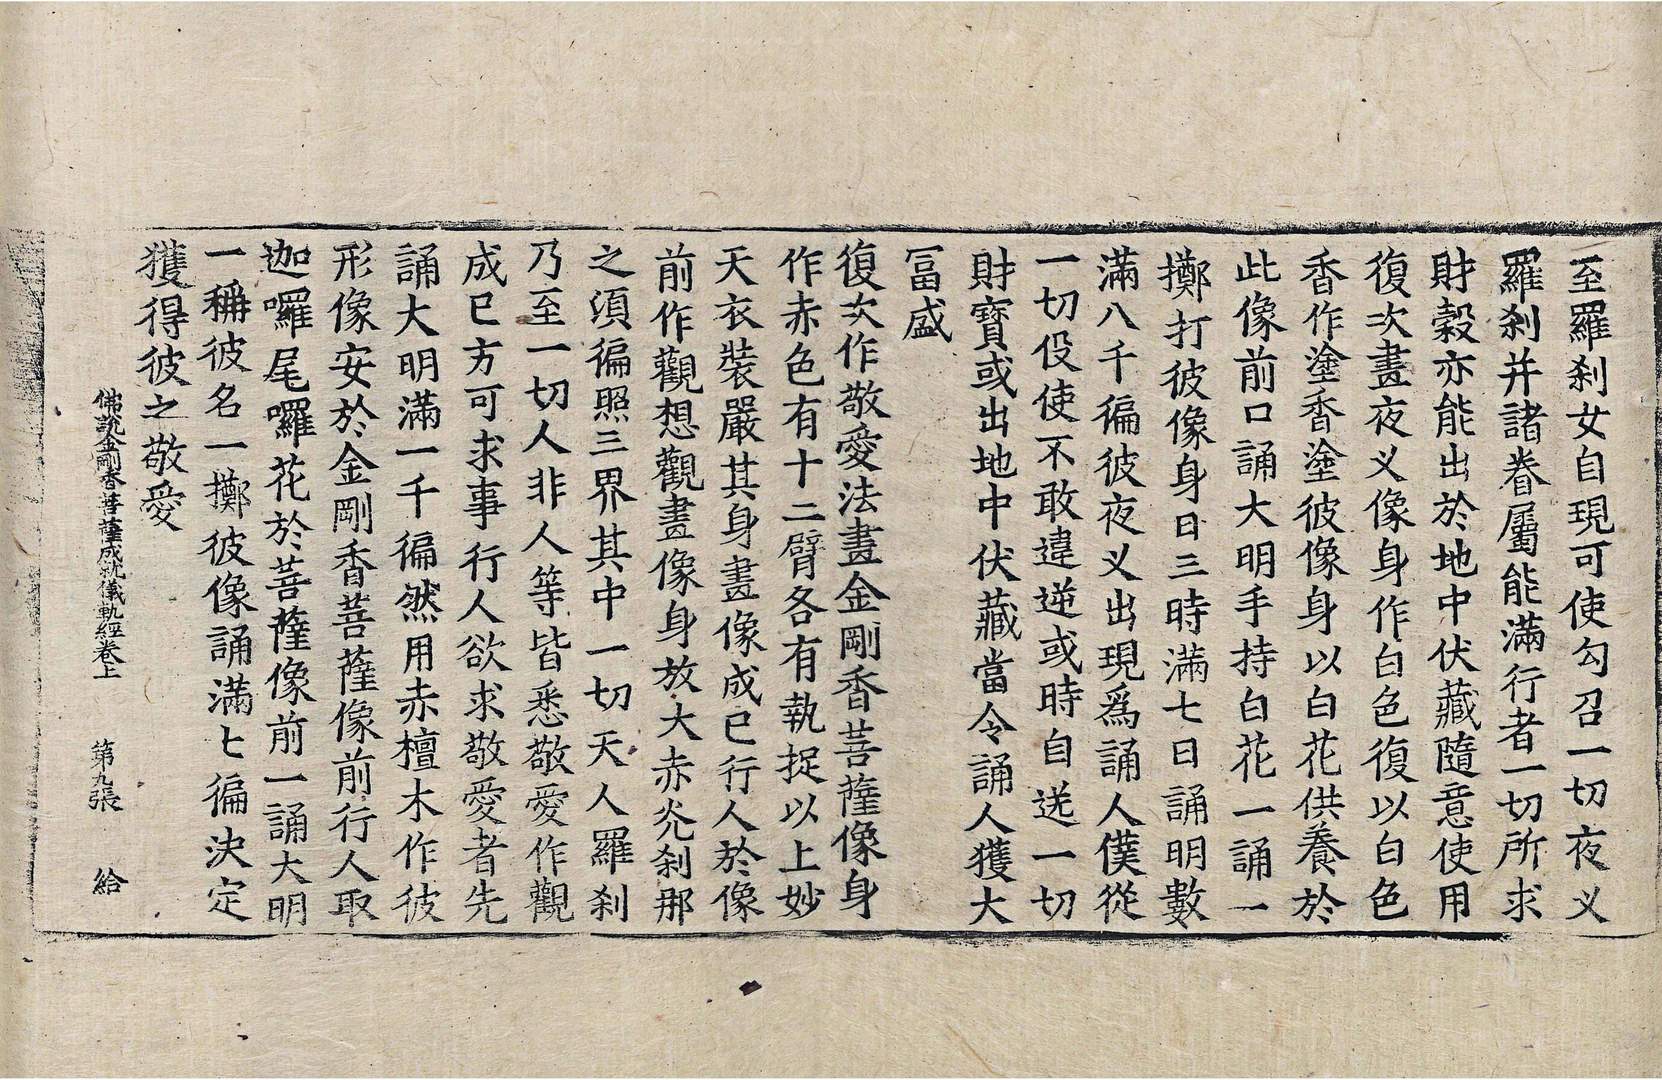 至羅刹女自現可使勾召一切夜义
羅刹并諸眷屬能滿行者一切所求
財穀亦能出於地中伏藏隨意使用
復次畫夜义像身作白色復以白色
香作塗香塗彼像身以白花供養於
此像前口誦大明手持白花一誦一
擲打彼像身日三時滿七日誦明數
滿八千徧彼夜义出現爲誦人僕從
一切伇使不敢違逆或時自送一切
財寶或出地中伏藏當令誦人獲大
冨盛
復次作敬愛法畫金剛香菩薩像身
作赤色有十二臂各有執捉以上妙
天衣裝嚴其身畫像成已行人於像
前作觀想觀畫像身放大赤光刹那
之須徧照三界其中一切天人羅刹
乃至一切人非人等皆悉敬愛作觀
成已方可求事行人欲求敬愛者先
誦大明滿一千徧然用赤檀木作彼
形像安於金剛香菩薩像前行人取
迦囉尾囉花於菩薩像前一誦大明
一稱彼名一擲彼像誦滿七徧決定
獲得彼之敬愛
佛說金剛香菩薩成就儀軌經卷上 第九張 給